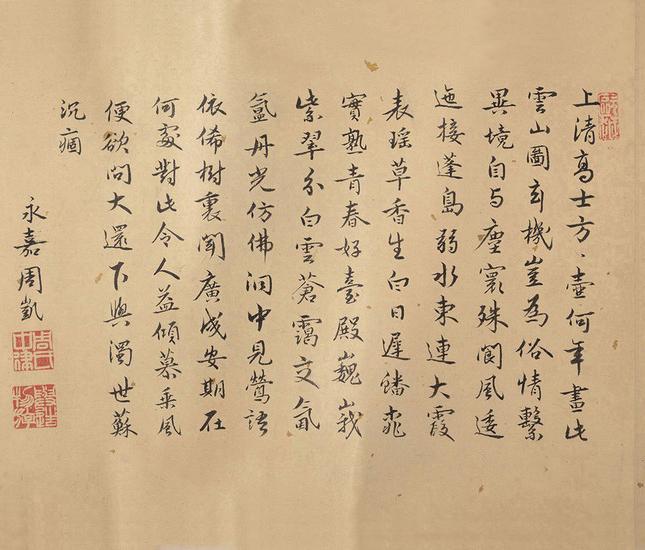 上清高士方、壺何年畫此
雲山圖玄機豈為俗情繫
異境自與塵寰殊閬風逶
迤接蓬島弱水東連大霞
表瑤草香生白日遲蟠桃
實熟青春好臺殿巍峩
紫翠分白雲蒼靄交氤
氳丹光仿佛洞中見鶯語
依俙樹裏聞廣成安期在
何處對此令人益傾慕乘風
便欲問大還下與濁世蘇
沉痼
永嘉周凱